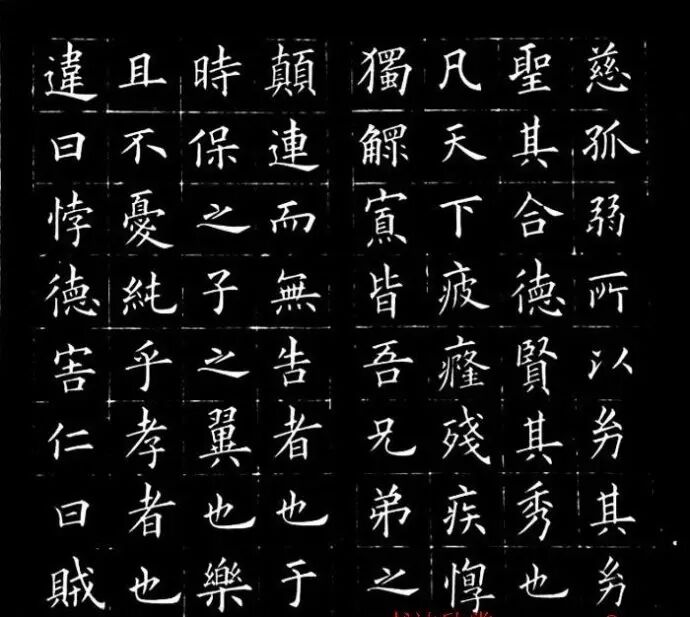 慈孤弱所以幼其幼
聖其合德賢其秀也
凡天下疲癃殘疾惸
獨鰥寡皆吾兄弟之
顛連而無告者也于
時保之子之翼也樂
且不憂純乎孝者也
違曰悖德害仁曰賊